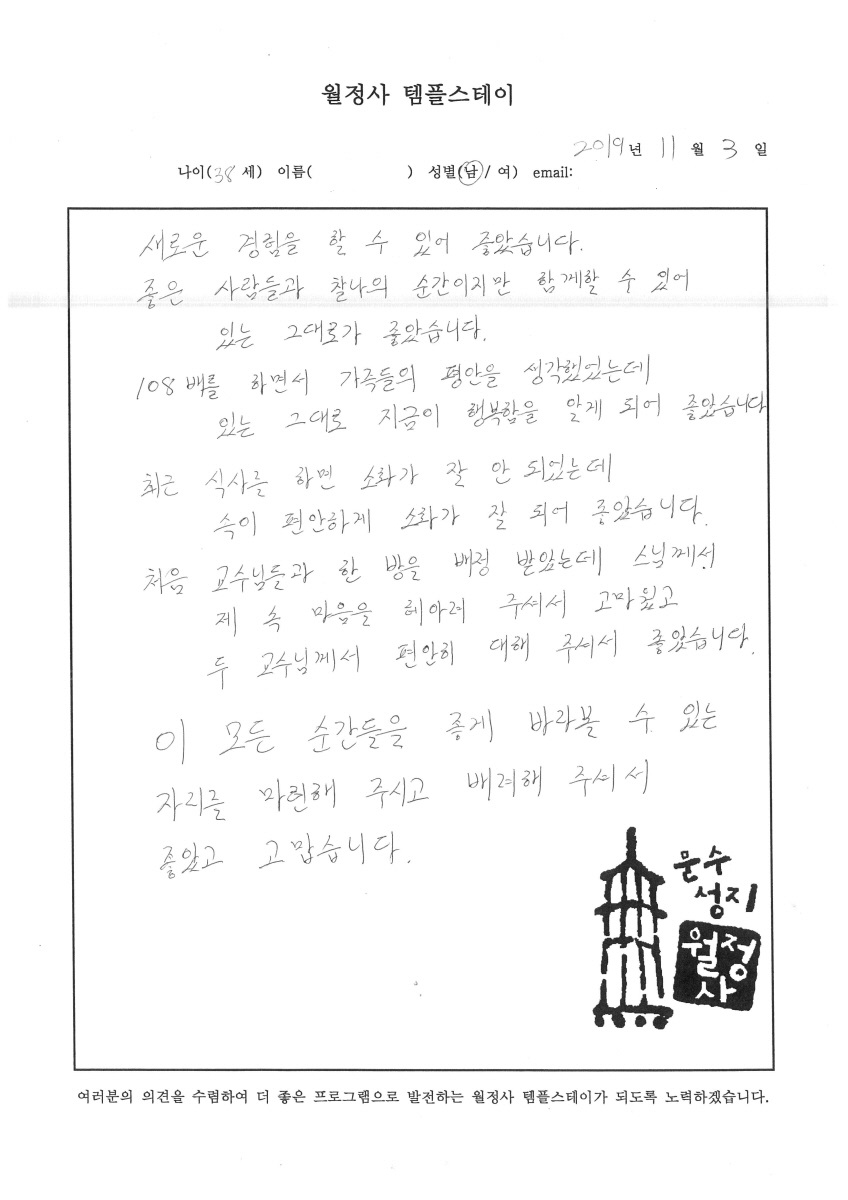 월정사 템플스테이
2019년 11월 3일
나이(38세) 이름( ) 성별(남/여) email:
새로운 경험을 할 수 있어 좋았습니다.
좋은 사람들과 찰나의 순간이지만 함께할 수 있어
있는 그대로가 좋았습니다.
108배를 하면서 가족들의 평안을 생각했었는데
있는 그대로 지금이 행복함을 알게 되어 좋았습니다
최근 식사를 하면 소화가 잘 안 되었는데
속이 편안하게 소화가 잘 되어 좋았습니다.
처음 교수님들과 한 방을 배정 받았는데 스님께서
제 속 마음을 헤아려 주셔서 고마웠고
두 교수님께서 편안히 대해 주셔서 좋았습니다.
이 모든 순간들을 좋게 바라볼 수 있는
자리를 마련해 주시고 배려해 주셔서
좋았고 고맙습니다.
문수
성지
월정
사
여러분의 의견을 수렴하여 더 좋은 프로그램으로 발전하는 월정사 템플스테이가 되도록 노력하겠습니다.